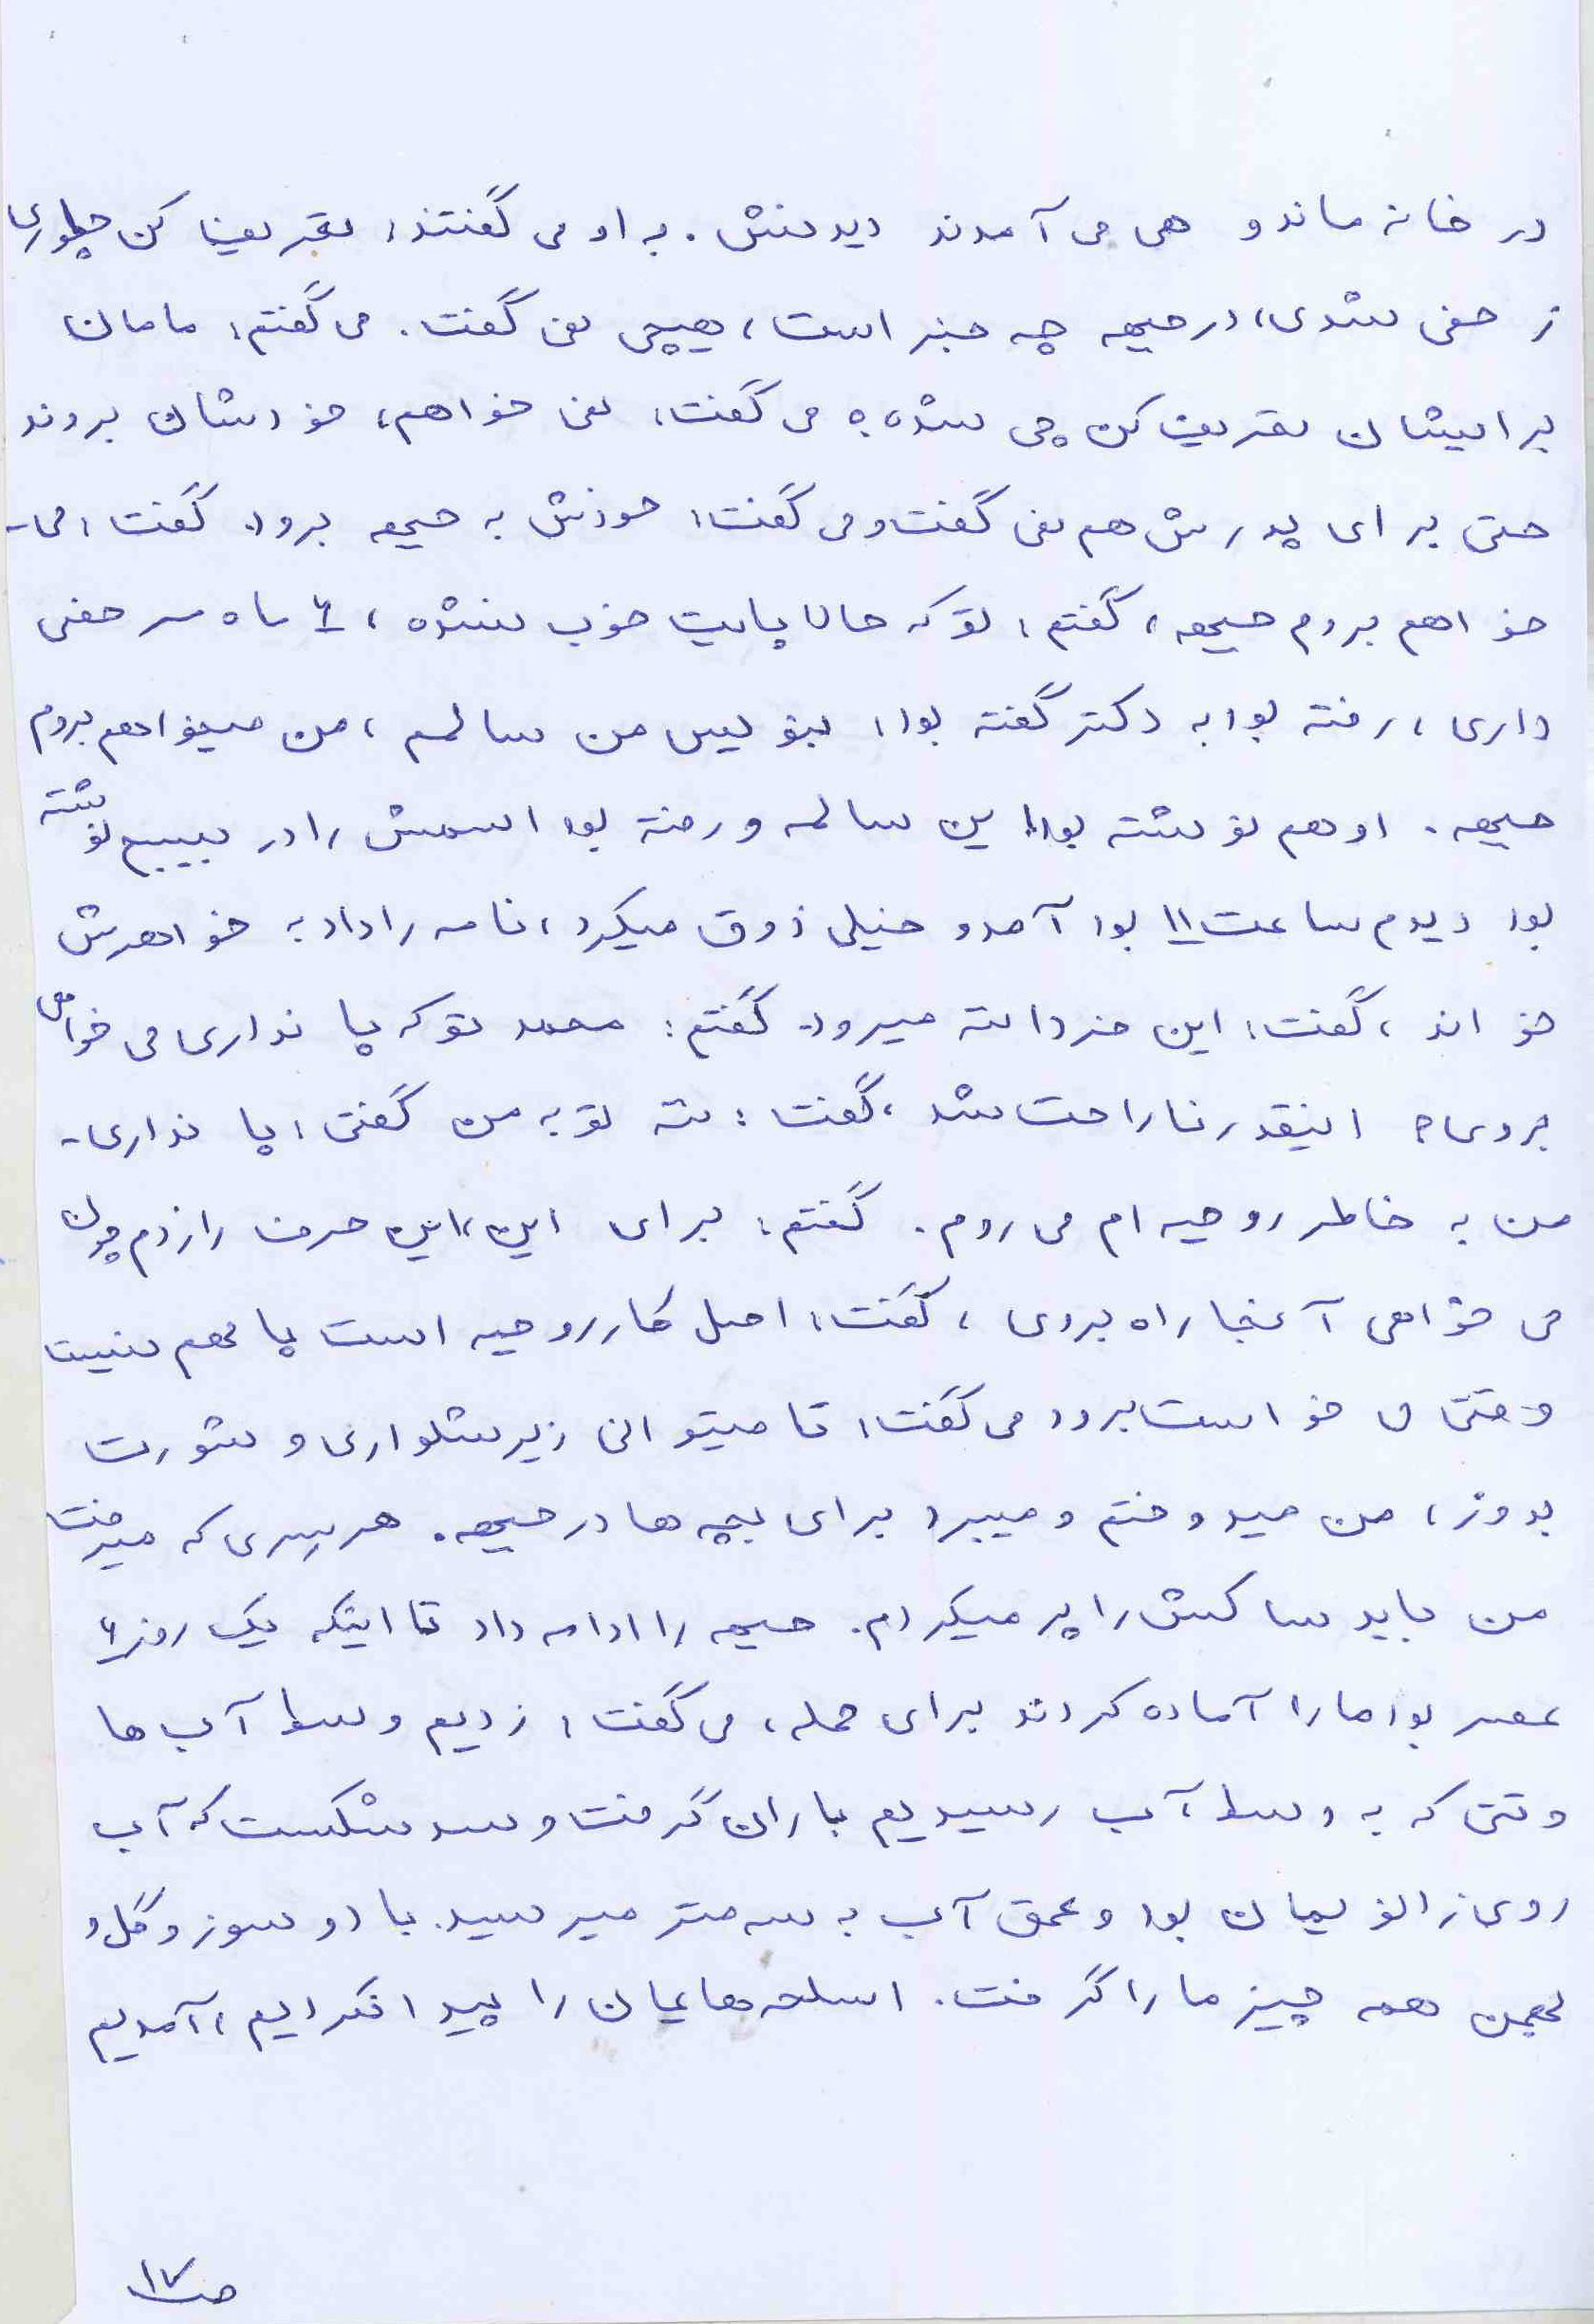 در خانه ماند و هی می آمدند دیدنش. به او می گفتند: تعریف کن چطوری
زخمی شدی، در جبهه چه خبر است، هیچی نمی گفت. می گفتم: مامان
برایشان تعریف کن چی شده؟ می گفت: نمی خواهم، خودشان بروند
حتی برای پدرش هم نمی گفت و می گفت: خودش به جبهه برود. گفت: می-
خواهم بروم جبهه، گفتم: تو که حالا پایت خوب نشده، ۶ ماه مرخصی
داری، رفته بود به دکتر گفته بود: بنویس من سالمم، من میخواهم بروم
جبهه. او هم نوشته بود: این سالمه و رفته بود اسمش را در بسیج نوشته
بود دیدم ساعت ۱۱ بود آمد و خیلی ذوق میکرد، نامه را داد به خواهرش
خواند، گفت: این مردانه میرود. گفتم: محمد تو که پا نداری می خواهی
بروی؟ اینقدر ناراحت شد، گفت: ننه تو به من گفتی: پا نداری-
من به خاطر روحیه ام می روم. گفتم: برای این، این حرف را زدم چون
می خواهی آنجا راه بروی، گفت: اصل کار روحیه است پا مهم نیست
وقتی می خواست برود می گفت: تا میتوانی زیرشلواری و شورت
بدوز، من میدوختم و میبرد برای بچه ها در جبهه. هر سری که میرفت
من باید ساکش را پر میکردم. جبهه را ادامه داد تا اینکه یک روز ۶
عصر بود ما را آماده کردند برای حمله، می گفت: زدیم وسط آب ها
وقتی که به وسط آب رسیدیم باران گرفت و سد شکست که آب
روی زانویمان بود و عمق آب به سه متر میرسید. باد و سوز و گل و
لجن همه چیز ما را گرفت. اسلحه هایمان را پیدا نکردیم، آمدیم
ص۱۷